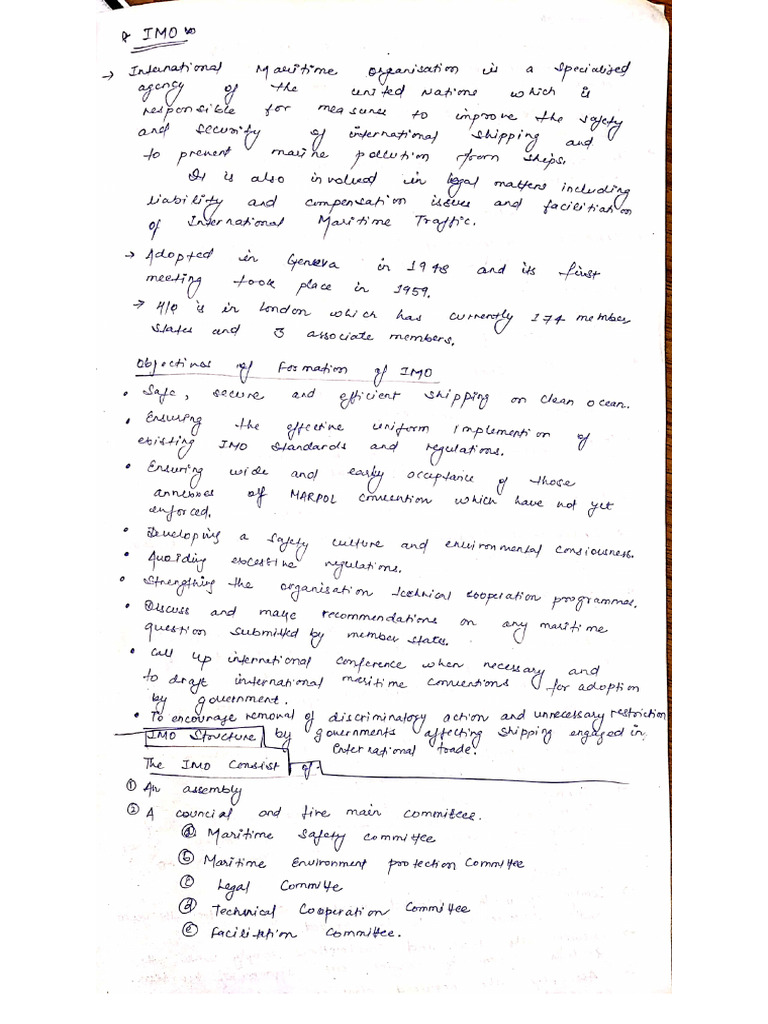 IMO
→ International Maritime organisation is a specialised
agency of the united Nations which is
responsible for measures to improve the safety
and security of international shipping and
to prevent marine pollution from ships.
It is also involved in legal matters including
liability and compensation issues and facilitiation
of International Maritime Traffic.
→ Adopted in Geneva in 1948 and its first
meeting took place in 1959.
→ H/Q is in London which has currently 174 member
states and 3 associate members.
Objectives of Formation of IMO
• Safe, secure and efficient shipping on clean ocean.
• Ensuring the effective uniform Implemention of
existing IMO standards and regulations.
• Ensuring wide and early acceptance of those
annexes of MARPOL convention which have not yet
enforced.
• Developing a safety culture and environmental consiousness.
• Avoiding excessive regulations.
• Strengthing the organisation technical cooperation programmes.
• Discuss and make recommendations on any maritime
question submitted by member states.
• Call up international conference when necessary and
to draft international meritime conventions for adoption
by government.
• To encourage removal of discriminatory action and unnecessary restriction
by governments affecting shipping engaged in
international trade.
IMO Structure
The IMO Consist of:
① An assembly
② A councial and five main committee.
ⓐ Maritime Safety committee
ⓑ Maritime Environment protection Committee
ⓒ Legal Committe
ⓓ Technical Cooperation Committee
ⓔ Facilitation Committee.